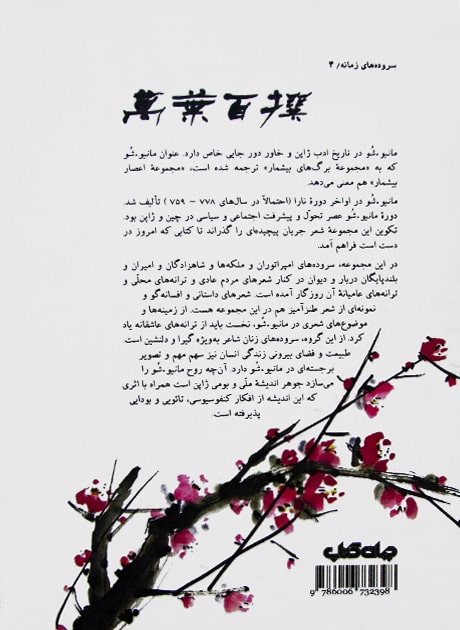 سروده‌های زمانه/ ۴
مانیو-شُو در تاریخ ادب ژاپن و خاور دور جایی خاص دارد. عنوان مانیو-شُو
که به «مجموعهٔ برگ‌های بیشمار» ترجمه شده است، «مجموعهٔ اعصار
بیشمار» هم معنی می‌دهد.
مانیو-شُو در اواخر دورهٔ نارا (احتمالاً در سال‌های ۷۷۸ – ۷۵۹ ) تألیف شد.
دورهٔ مانیو-شُو عصر تحول و پیشرفت اجتماعی و سیاسی در چین و ژاپن بود.
تکوین این مجموعهٔ شعر جریان پیچیده‌ای را گذراند تا کتابی که امروز در
دست است فراهم آمد.
در این مجموعه، سروده‌های امپراتوران و ملکه‌ها و شاهزادگان و امیران و
بلندپایگان دربار و دیوان در کنار شعرهای مردم عادی و ترانه‌های محلّی و
ترانه‌های عامیانهٔ آن روزگار آمده است. شعرهای داستانی و افسانه‌گو و
نمونه‌ای از شعر طنزآمیز هم در این مجموعه هست. از زمینه‌ها و
موضوع‌های شعری در مانیو-شُو، نخست باید از ترانه‌های عاشقانه یاد
کرد. از این گروه، سروده‌های زنان شاعر به‌ویژه گیرا و دلنشین است.
طبیعت و فضای بیرونی زندگی انسان نیز سهم مهم و تصویر
برجسته‌ای در مانیو-شُو دارد. آن‌چه روح مانیو-شُو را
می‌سازد جوهر اندیشهٔ ملّی و بومی ژاپن است همراه با اثری
که این اندیشه از افکار کنفوسیوسی، تائویی و بودایی
پذیرفته است.
9 786006 732398